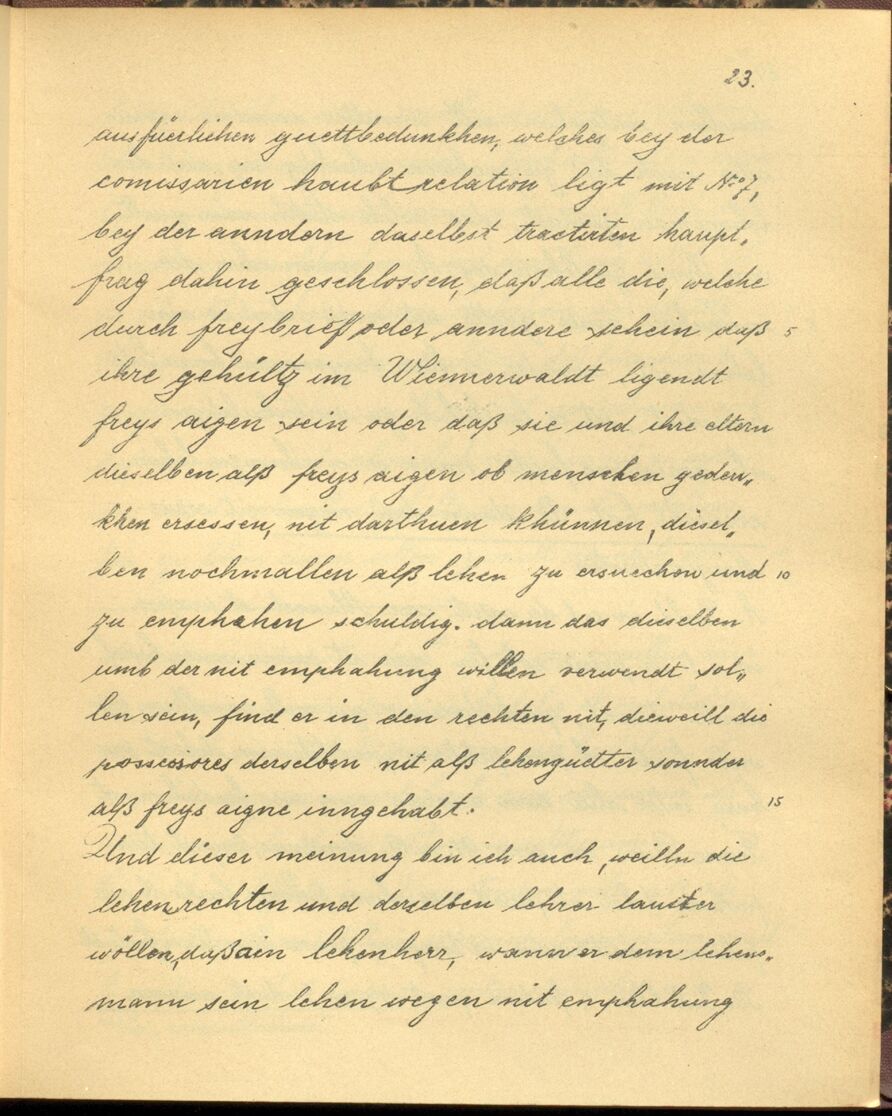 23.
ausfüerlichen guettbedunkhen, welches bey der
comissarien haubtrelation ligt mit No 7,
bey der anndern daselbst tractirten haupt„
frag dahin geschlossen, daß alle die, welche
durch freybrief oder anndere schein daß 5
ihre gehültz im Wiennerwaldt ligendt
freys aigen sein oder daß sie und ihre eltern
dieselben alß freys aigen ob menschen geden„
khen ersessen, nit darthuen khünnen, diesel„
ben nochmallen alß lehen zu ersuechen und 10
zu emphahen schuldig. dann das dieselben
umb der nit emphahung willen verwendt sol„
len sein, find er in den rechten nit, dieweill die
possessores derselben nit alß lehengüetter sonnder
alß freys aigne inngehabt. 15
Und dieser meinung bin ich auch, weilln die
lehenrechten und derselben lehrer lautter
wöllen, daß ain lehenherr, wann er dem lehens„
mann sein lehen wegen nit emphahung